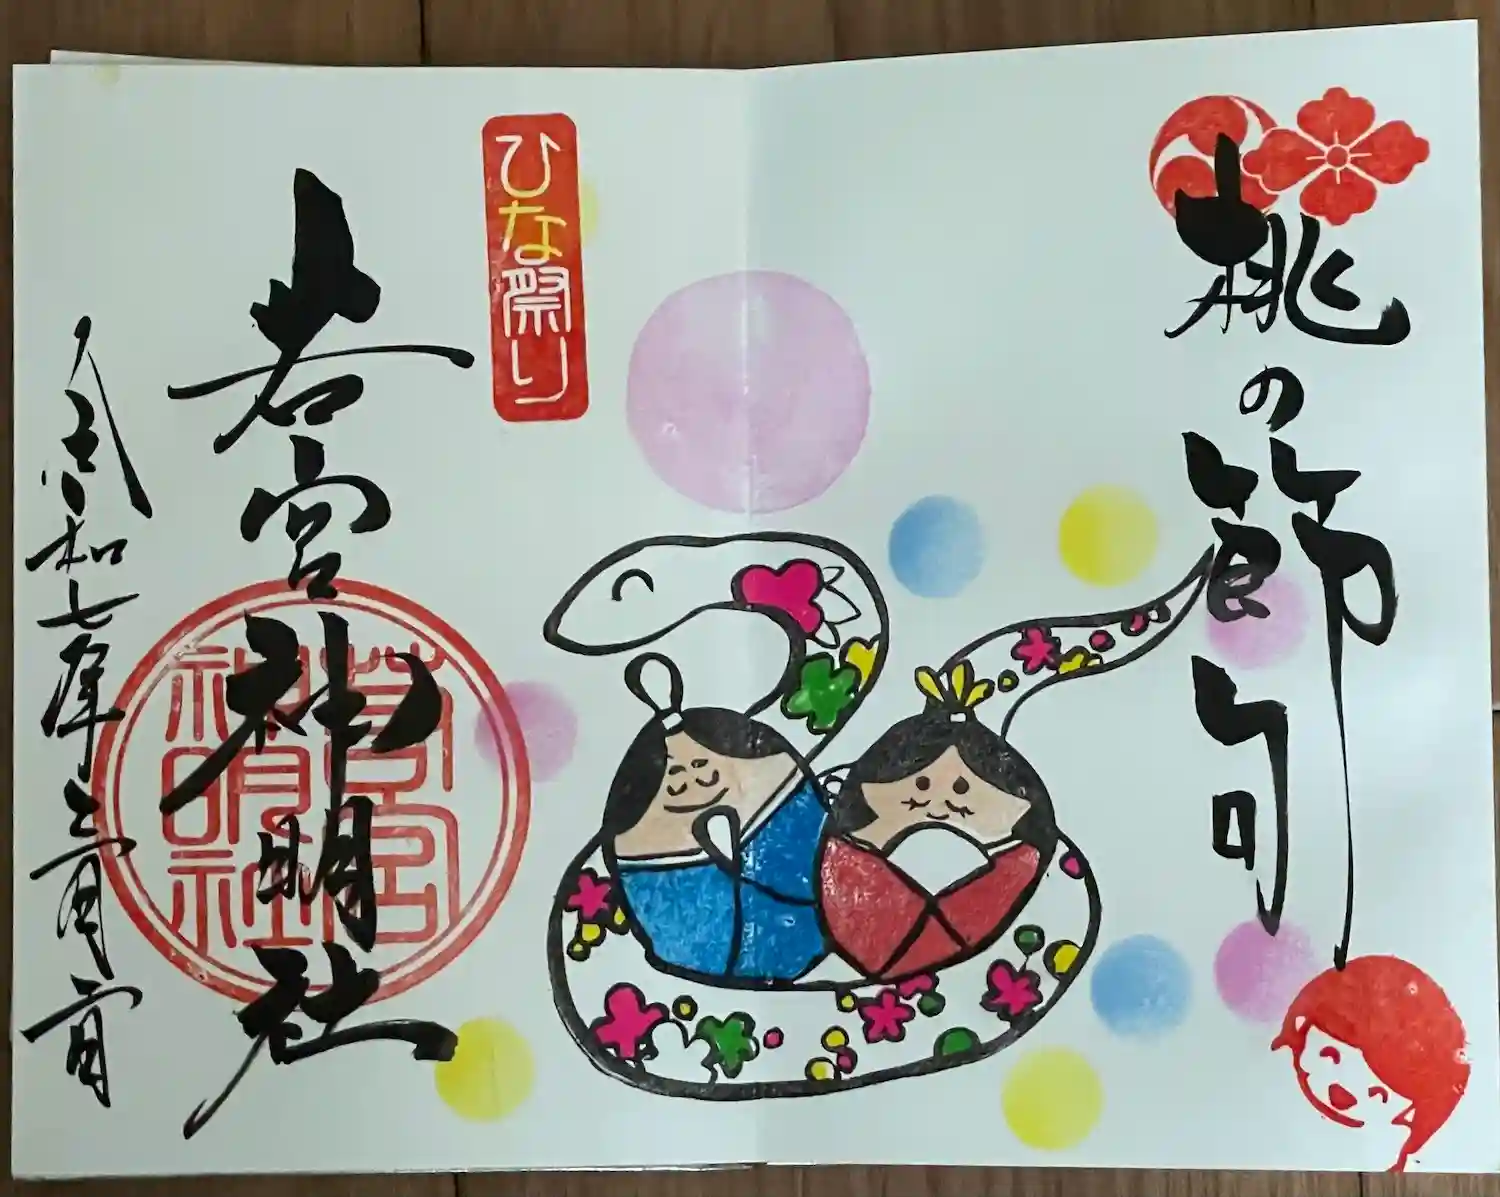 桃の節句
ひな祭り
若宮神明社
若宮神明社
令和七年三月二日